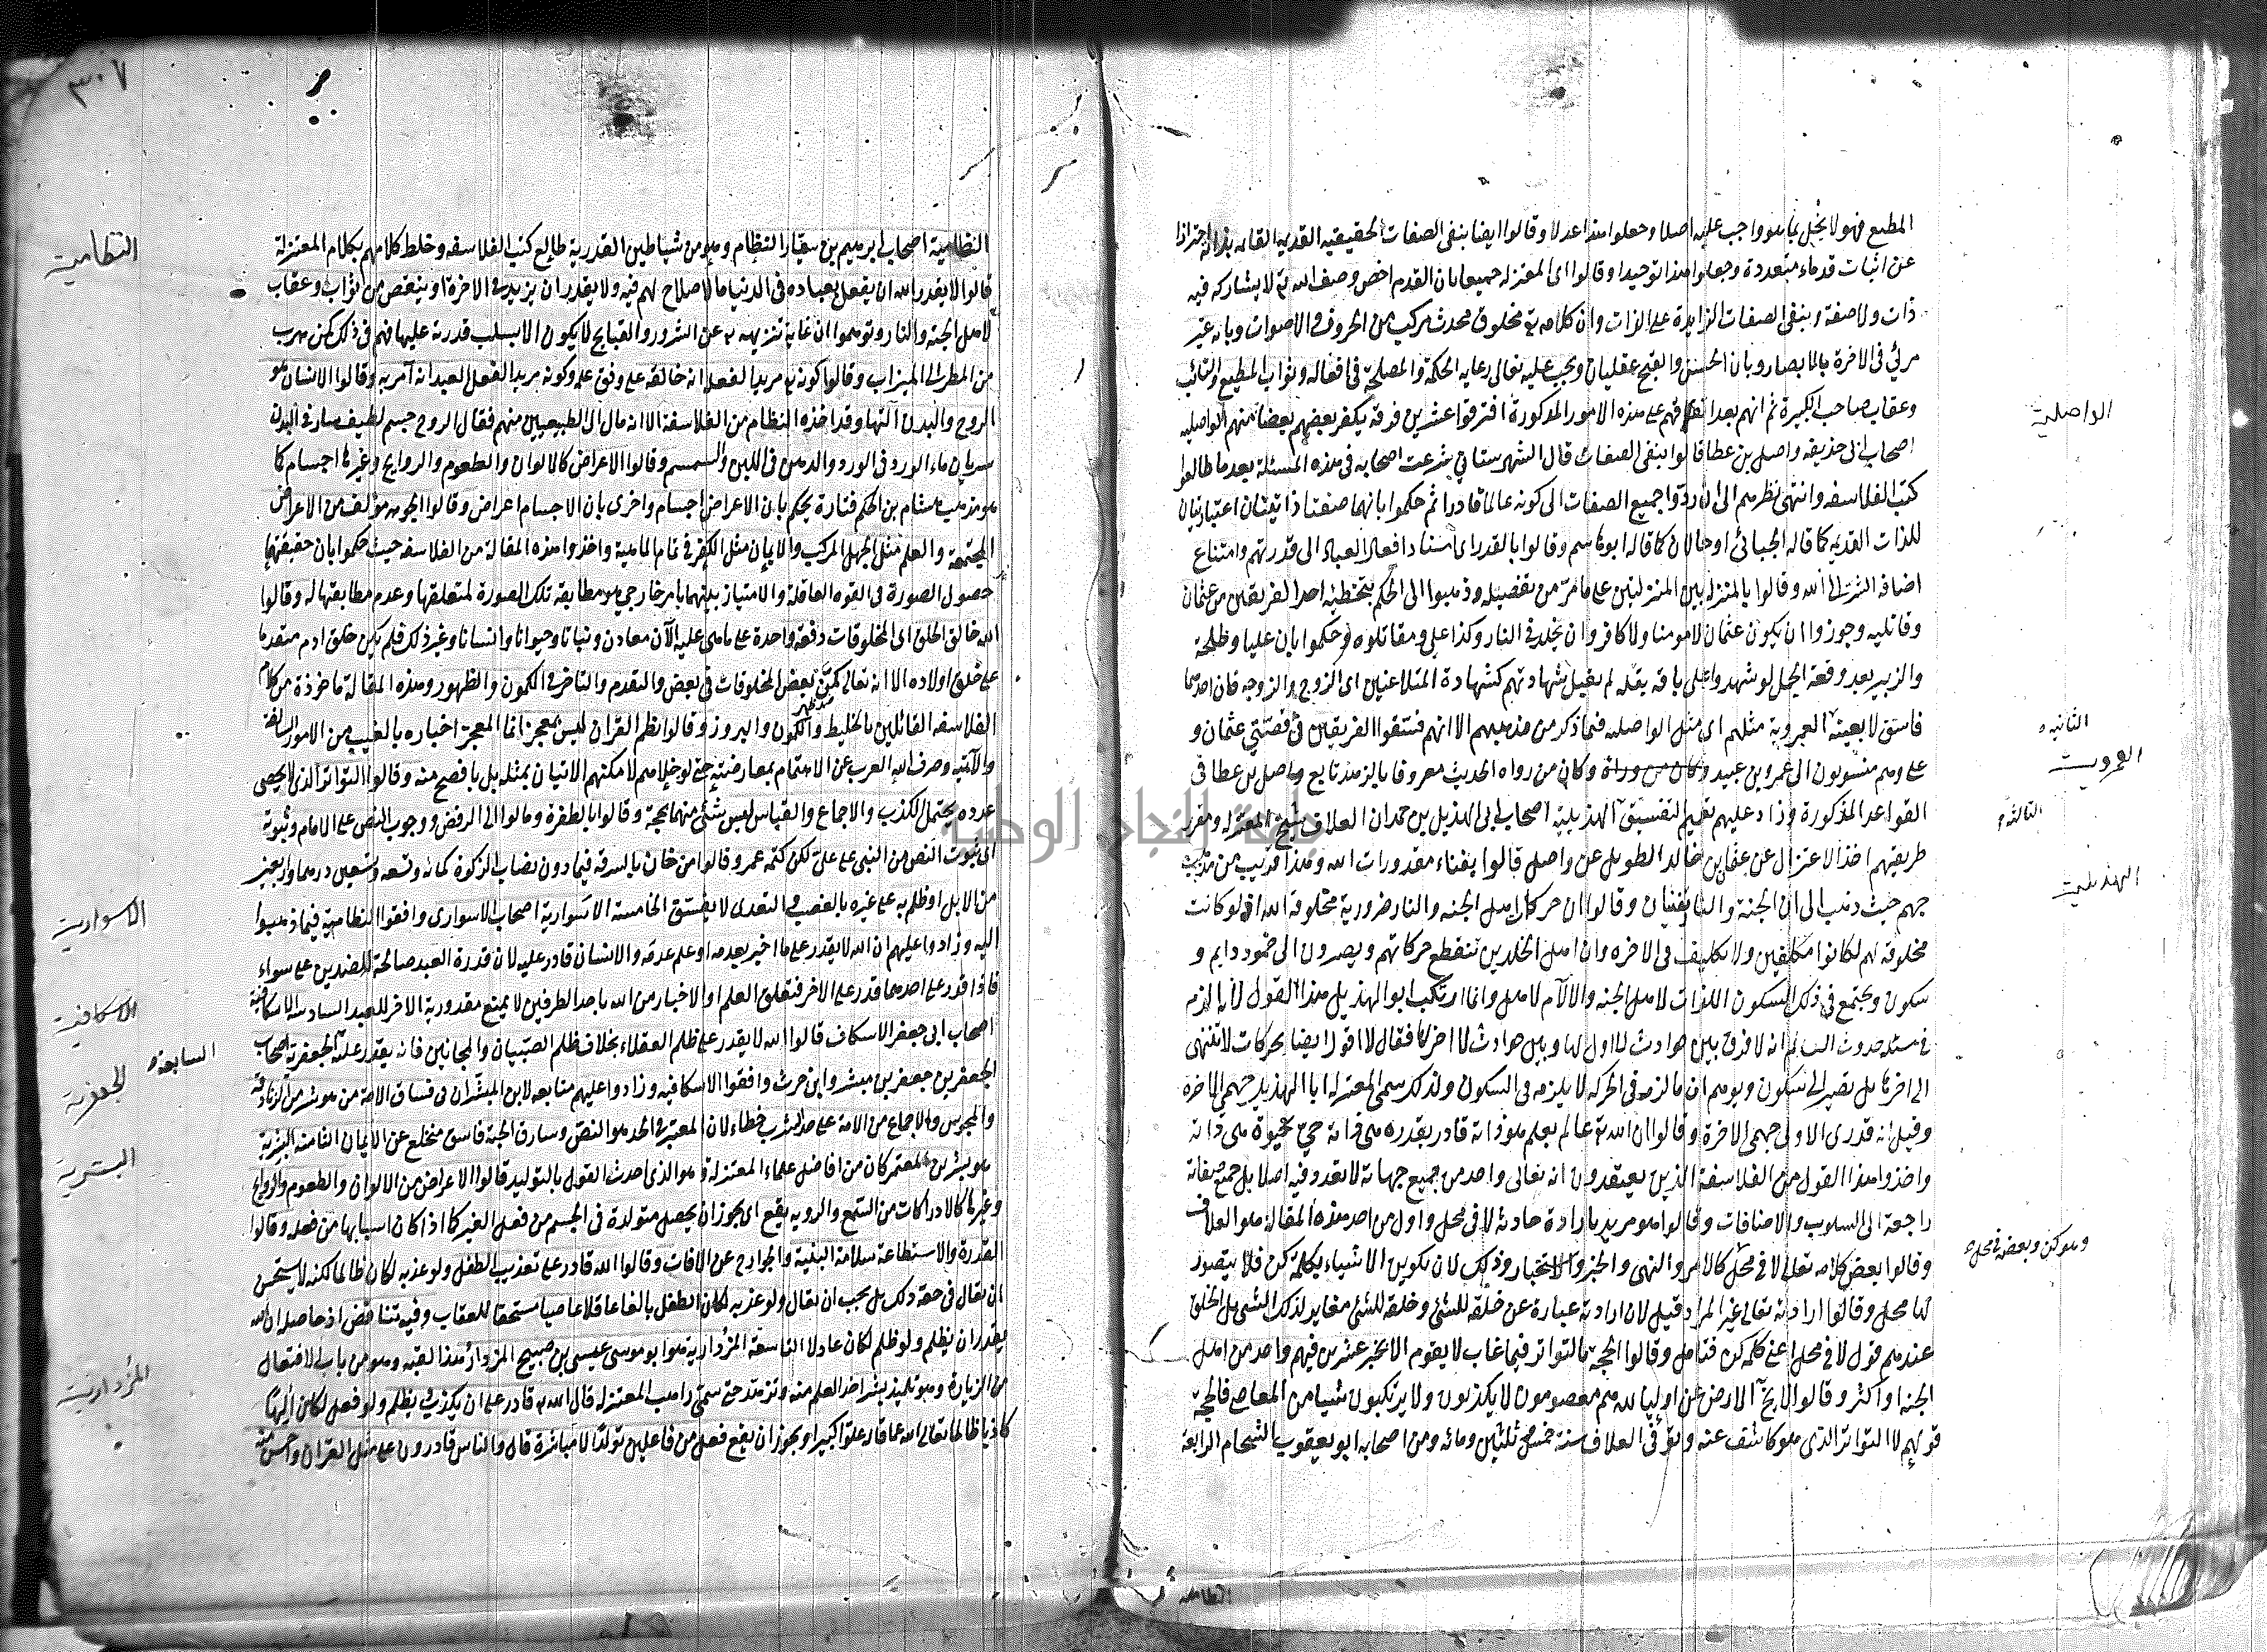 المطيع فهو لا يخل بما هو واجب عليه اصلا وجعلوا هذا عدلا وقالوا ايضا بنفي الصفات الحقيقيه القديمه القائمه بذاته احترازا
عن اثبات قدماء متعددة وجعلوا هذا توحيدا وقالوا اى المعتزله جميعا بان القدم اخص وصف الله تع لا يشاركه فيه
ذات ولا صفة وبنفى الصفات الزايدة على الذات وان كلامه تع مخلوق محدث مركب من الحروف والاصوات وبانه غير
مرئي فى الاخرة بالابصار وبان الحسن والقبح عقليان ويجب عليه تعالى رعايه الحكمة والمصلحة فى افعاله وثواب المطيع والتائب
وعقاب صاحب الكبيرة ثم انهم بعد اتفاقهم على هذه الامور المذكورة افترقوا عشرين فرقه يكفر بعضهم بعضا منهم الواصليه
الواصلية
اصحاب ابى حذيفه واصل بن عطا قالوا بنفى الصفات قال الشهرستاني شرعت اصحابه فى هذه المسئلة بعد ما طالعوا
كتب الفلاسفه وانتهى نظرهم الى ان ردوا جميع الصفات الى كونه عالما قادرا ثم حكموا بانهما صفتا ذاتيتان اعتباريتان
للذات القديمه كما قاله الجبائى او حالان كما قاله ابو هاشم وقالوا بالقدر اى اسناد افعال العباد الى قدرتهم وامتناع
اضافه الشر الى الله وقالوا بالمنزله بين المنزلتين على ما مر من تفصيله وذهبوا الى الحكم بتخطئه احد الفريقين من عثمان
وقاتليه وجوزوا ان يكون عثمان لا مومنا ولا كافر وان يخلد فى النار وكذا على ومقاتلوه وحكموا بان عليا وطلحة
والزبير بعد وقعة الجمل لو شهدوا على باقه بقله لم يقبل شهادتهم كشهادة المتلاعنين اى الزوج والزوجه فان احدهما
فاسق لا بعينه العمرويه مثلهم اى مثل الواصليه فيما ذكر من مذهبهم الا انهم فسقوا الفريقين فى قصتي عثمان و
الثانيه
العمروية
على وهم منسوبون الى عمرو بن عبيد وكان من رواه الحديث معروفا بالزهد تابع واصل بن عطا فى
القواعد المذكورة وزاد عليهم تعميم التفسيق الهذيليه اصحاب ابى الهذيل بن حمدان العلاف شيخ المعتزله ومقرر
الثالثه
الهذيلية
طريقتهم اخذ الاعتزال عن عثمان بن خالد الطويل عن واصل قالوا بفناء مقدورات الله وهذا قريب من مذهب
جهم حيث ذهب الى ان الجنة والنار تفنيان وقالوا ان حركات اهل الجنه والنار ضرورية مخلوقة الله اذ لو كانت
مخلوقه لهم لكانوا مكلفين ولا تكليف فى الاخره وان اهل الخلدين تنقطع حركاتهم ويصيرون الى خمود دايم و
سكون ويجتمع فى ذلك السكون اللذات لاهل الجنه والالام لاهل وانما ارتكب ابو الهذيل هذا القول لانه الزم
فى مسئله حدوث العالم انه لا فرق بين حوادث لا اول لها وبين حوادث لا اخر لها فقال لا اقول ايضا بحركات لا تنتهى
الى اخرها بل تصير الى سكون ويوهم ان ما لزمه فى الحركه لا يلزمه فى السكون ولذلك سمى المعتزله ابا الهذيل جهمى الاخره
وقيل انه قدرى الاولى جهمى الاخرة وقالوا ان الله تع عالم بعلم هو ذاته قادر بقدره هى ذاته حي بحيوة هى ذاته
واخذوا هذا القول من الفلاسفة الذين يعتقدون انه تعالى واحد من جميع جهاته لا تعدد فيه اصلا بل جميع صفاته
راجعة الى السلوب والاضافات وقالوا هو مريد بارادة حادثه لا فى محل واول من احدث هذه المقاله هو العلاف
وقالوا بعض كلامه تعالى لا فى محل كالامر والنهى والخبر والاستخبار وذلك لان تكوين الاشياء بكلمة كن فلا يتصور
وهو كن وبعضه فى محل
لها محل وقالوا ارادته تعالى غير المراد قيل لان ارادته عبارة عن خلقه للشئ وخلقه للشئ مغاير لذلك الشئ بل الخلق
عندهم قول لا فى محل اعنى كلمه كن فتامل وقالوا الحجة بالتواتر فيما غاب لا يقوم الا بخبر عشرين فيهم واحد من اهل
الجنه او اكثر وقالوا لا يخ الارض عن اولياء لله هم معصومون لا يكذبون ولا يرتكبون شيئا من المعاصى فالحجة
قولهم لا التواتر الذى هو كاشف عنه وتوفى العلاف سنة خمس وثلثين ومائه ومن اصحابه ابو يعقوب الشحام الرابعة
النظاميه
٣٠٧
النظامية اصحاب ابرهيم بن سيار النظام وهو من شياطين القدرية طالع كتب الفلاسفه وخلط كلامهم بكلام المعتزلة
النظامية
قالوا لا يقدر الله ان يفعل بعباده فى الدنيا ما لا صلاح لهم فيه ولا يقدر ان يزيد فى الاخرة او ينقص من ثواب وعقاب
لاهل الجنه والنار وتوهموا ان غاية تنزيهه تع عن الشرور والقبايح لا يكون الا بسلب قدرته عليها فهم فى ذلك كمن هرب
من المطر الى الميزاب وقالوا كونه تع مريدا لفعله انه خالقه على وفق علمه وكونه مريدا لفعل العبد انه آمر به وقالوا الانسان هو
الروح والبدن آلتها وقد اخذه النظام من الفلاسفة الا انه مال الى الطبيعيين منهم فقال الروح جسم لطيف سار فى البدن
سريان ماء الورد فى الورد والدهن فى اللبن والسمسم وقالوا الاعراض كالالوان والطعوم والروايح وغيرها اجسام كما
هو مذهب هشام بن الحكم فتارة يحكم بان الاعراض اجسام واخرى بان الاجسام اعراض وقالوا الجوهر مؤلف من الاعراض
المجتمعة والعلم مثل الجهل المركب والايمان مثل الكفر فى تمام الماهية واخذوا هذه المقالة من الفلاسفه حيث حكموا بان حقيقتهما
حصول الصورة فى القوه العاقلة والامتياز بينهما بامر خارجي هو مطابقه تلك الصورة لمتعلقها وعدم مطابقتها له وقالوا
الله خالق الخلق اى المخلوقات دفعة واحدة على ما هى عليه الآن معادن ونباتا وحيوانا وانسانا وغير ذلك فلم يكن خلق ادم متقدما
على خلق اولاده الا انه تعالى كمن بعض المخلوقات فى بعض والتقدم والتاخر فى الكمون والظهور وهذه المقالة ماخوذة من كلام
الفلاسفه القائلين بالخليط والكمون والبروز وقالوا نظم القران ليس بمعجز انما المعجز اخباره بالغيب من الامور السالفة
والآتيه وصرف الله العرب عن الاهتمام بمعارضته حتى لو خلاهم لامكنهم الاتيان بمثله بل بافصح منه وقالوا التواتر الذى لا يحصى
عدده يحتمل الكذب والاجماع والقياس ليس شئ منهما بحجة وقالوا بالطفرة ومالوا الى الرفض ووجوب النص على الامام وثبوته
اى ثبوت النص من النبى على على لكن كتمه عمر وقالوا من خان بالسرقه فيما دون نصاب الزكوة كمائه وتسعه وتسعين درهما واربعه
من الابل او ظلم به على غيره بالغصب والتعدى لا يفسق الخامسة الاسوارية اصحاب الاسوارى وافقوا النظاميه فيما ذهبوا
الاسوارية
اليه وزادوا عليهم ان الله لا يقدر على ما اخبر بعدمه او علم عدمه والانسان قادر عليه لان قدرة العبد صالحة للضدين على سواء
فاذا قدر على احدهما قدر على الاخر فتعلق العلم او الاخبار من الله باحد الطرفين لا يمنع مقدورية الاخر للعبد السادسه الاسكافيه
الاسكافية
اصحاب ابى جعفر الاسكاف قالوا الله لا يقدر على ظلم العقلاء بخلاف ظلم الصبيان والمجانين فانه يقدر عليه الجعفرية اصحاب
السابعه
الجعفرية
الجعفرين جعفر بن مبشر وابن حرث وافقوا الاسكافيه وزادوا عليهم متابعه لابن المبشر ان فى فساق الامة من هو شر من الزنادقه
والمجوس والاجماع من الامة على حد الشرب خطاء لان المعتبر فى الحد هو النص وسارق الحبة فاسق منخلع عن الايمان الثامنه البشرية
البشرية
هو بشر بن المعتمر كان من افاضل علماء المعتزلة وهو الذى احدث القول بالتوليد قالوا الاعراض من الالوان والطعوم والروايح
وغيرها كالادراكات من السمع والرويه يقع اى يجوز ان يحصل متولدة فى الجسم من فعل الغير كما اذا كان اسبابها من فعله وقالوا
القدرة والاستطاعة سلامة البنية والجوارح عن الافات وقالوا الله قادر على تعذيب الطفل ولو عذبه لكان ظالما لكنه لا يستحسن
ان يقال فى حقه ذلك بل يجب ان يقال ولو عذبه لكان الطفل بالغا عاقلا عاصيا مستحقا للعقاب وفيه تناقض اذ حاصله ان الله
يقدر ان يظلم ولو ظلم لكان عادلا التاسعة المزداريه هو ابو موسى عيسى بن صبيح المزدار هذا لقبه وهو من باب الافتعال
المزدارية
من الزيارة وهو تلميذ بشر اخذ العلم منه وتزهد حتى سمى راهب المعتزله قال الله تع قادر على ان يكذب ويظلم ولو فعل لكان الها
كاذبا ظالما تعالى الله عما قاله علوا كبيرا ويجوز ان يقع فعل من فاعلين تولدا لا مباشرة قال والناس قادرون على مثل القران واحسن منه